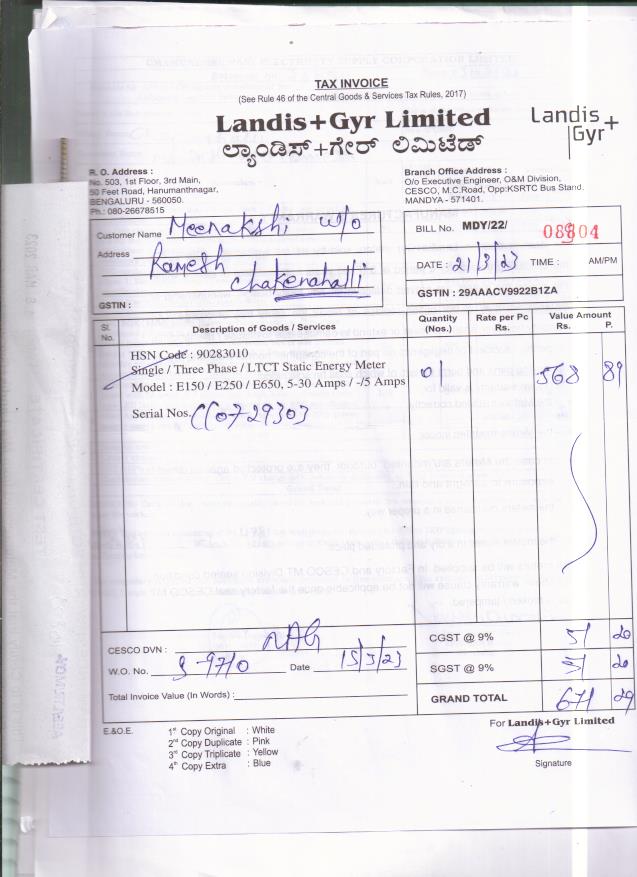 TAX INVOICE
(See Rule 46 of the Central Goods & Services Tax Rules, 2017)
Landis+Gyr Limited
Landis
Gyr+
ಲ್ಯಾಂಡಿಸ್+ಗೇರ್ ಲಿಮಿಟೆಡ್
R. O. Address :
No. 503, 1st Floor, 3rd Main,
50 Feet Road, Hanumanthnagar,
BENGALURU - 560050.
Ph.: 080-26678515
Branch Office Address :
O/o Executive Engineer, O&M Division,
CESCO, M.C.Road, Opp:KSRTC Bus Stand.
MANDYA - 571401.
Customer Name Meenakshi w/o
Address Ramesh
Chakenahalli
GSTIN :
BILL No. MDY/22/
DATE : 21/3/23 TIME : AM/PM
GSTIN : 29AAACV9922B1ZA
Sl. No. Description of Goods / Services Quantity (Nos.) Rate per Pc Rs. Value Amount Rs. P.
HSN Code : 90283010
Single / Three Phase / LTCT Static Energy Meter 01 568 89
Model : E150 / E250 / E650, 5-30 Amps / -/5 Amps
Serial Nos. CC0729303
CESCO DVN : NAG
W.O. No. S-9710 Date 15/3/23
Total Invoice Value (In Words) :
CGST @ 9% 51 20
SGST @ 9% 51 20
GRAND TOTAL 671 29
E.&O.E.
1st Copy Original : White
2nd Copy Duplicate : Pink
3rd Copy Triplicate : Yellow
4th Copy Extra : Blue
For Landis+Gyr Limited
Signature